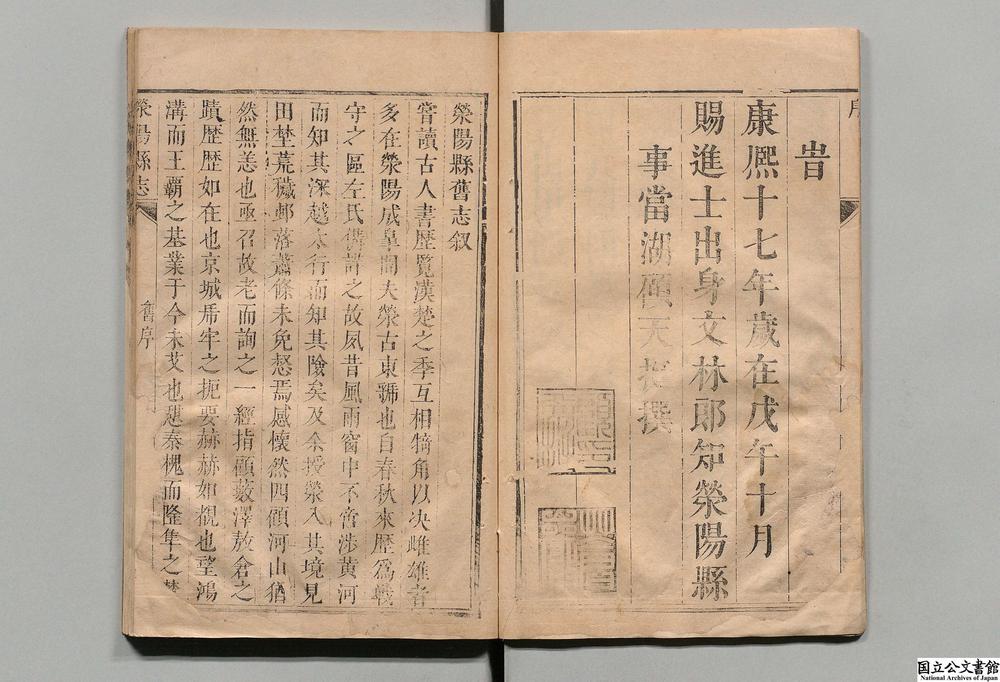 序
旹
康熙十七年歲在戊午十月
賜進士出身文林郎知滎陽縣
事當湖顧天挹撰
滎陽縣舊志叙
嘗讀古人書歷覽漢楚之季互相犄角以决雌雄者
多在滎陽成臯間夫滎古東虢也自春秋來歷爲戰
守之區左氏備詳之故夙昔風雨窗中不啻涉黄河
而知其深越太行而知其險矣及余授滎入其境見
田埜荒穢邨落蕭條未免惄焉感懷然四顧河山猶
然無恙也亟召故老而詢之一經指顧藪澤敖倉之
蹟歷歷如在也京城乕牢之扼要赫赫如覩也望鴻
溝而王覇之基業于今未艾也憩秦槐而隆隼之
滎陽縣志
舊序
国立公文書館
National Archives of Japan